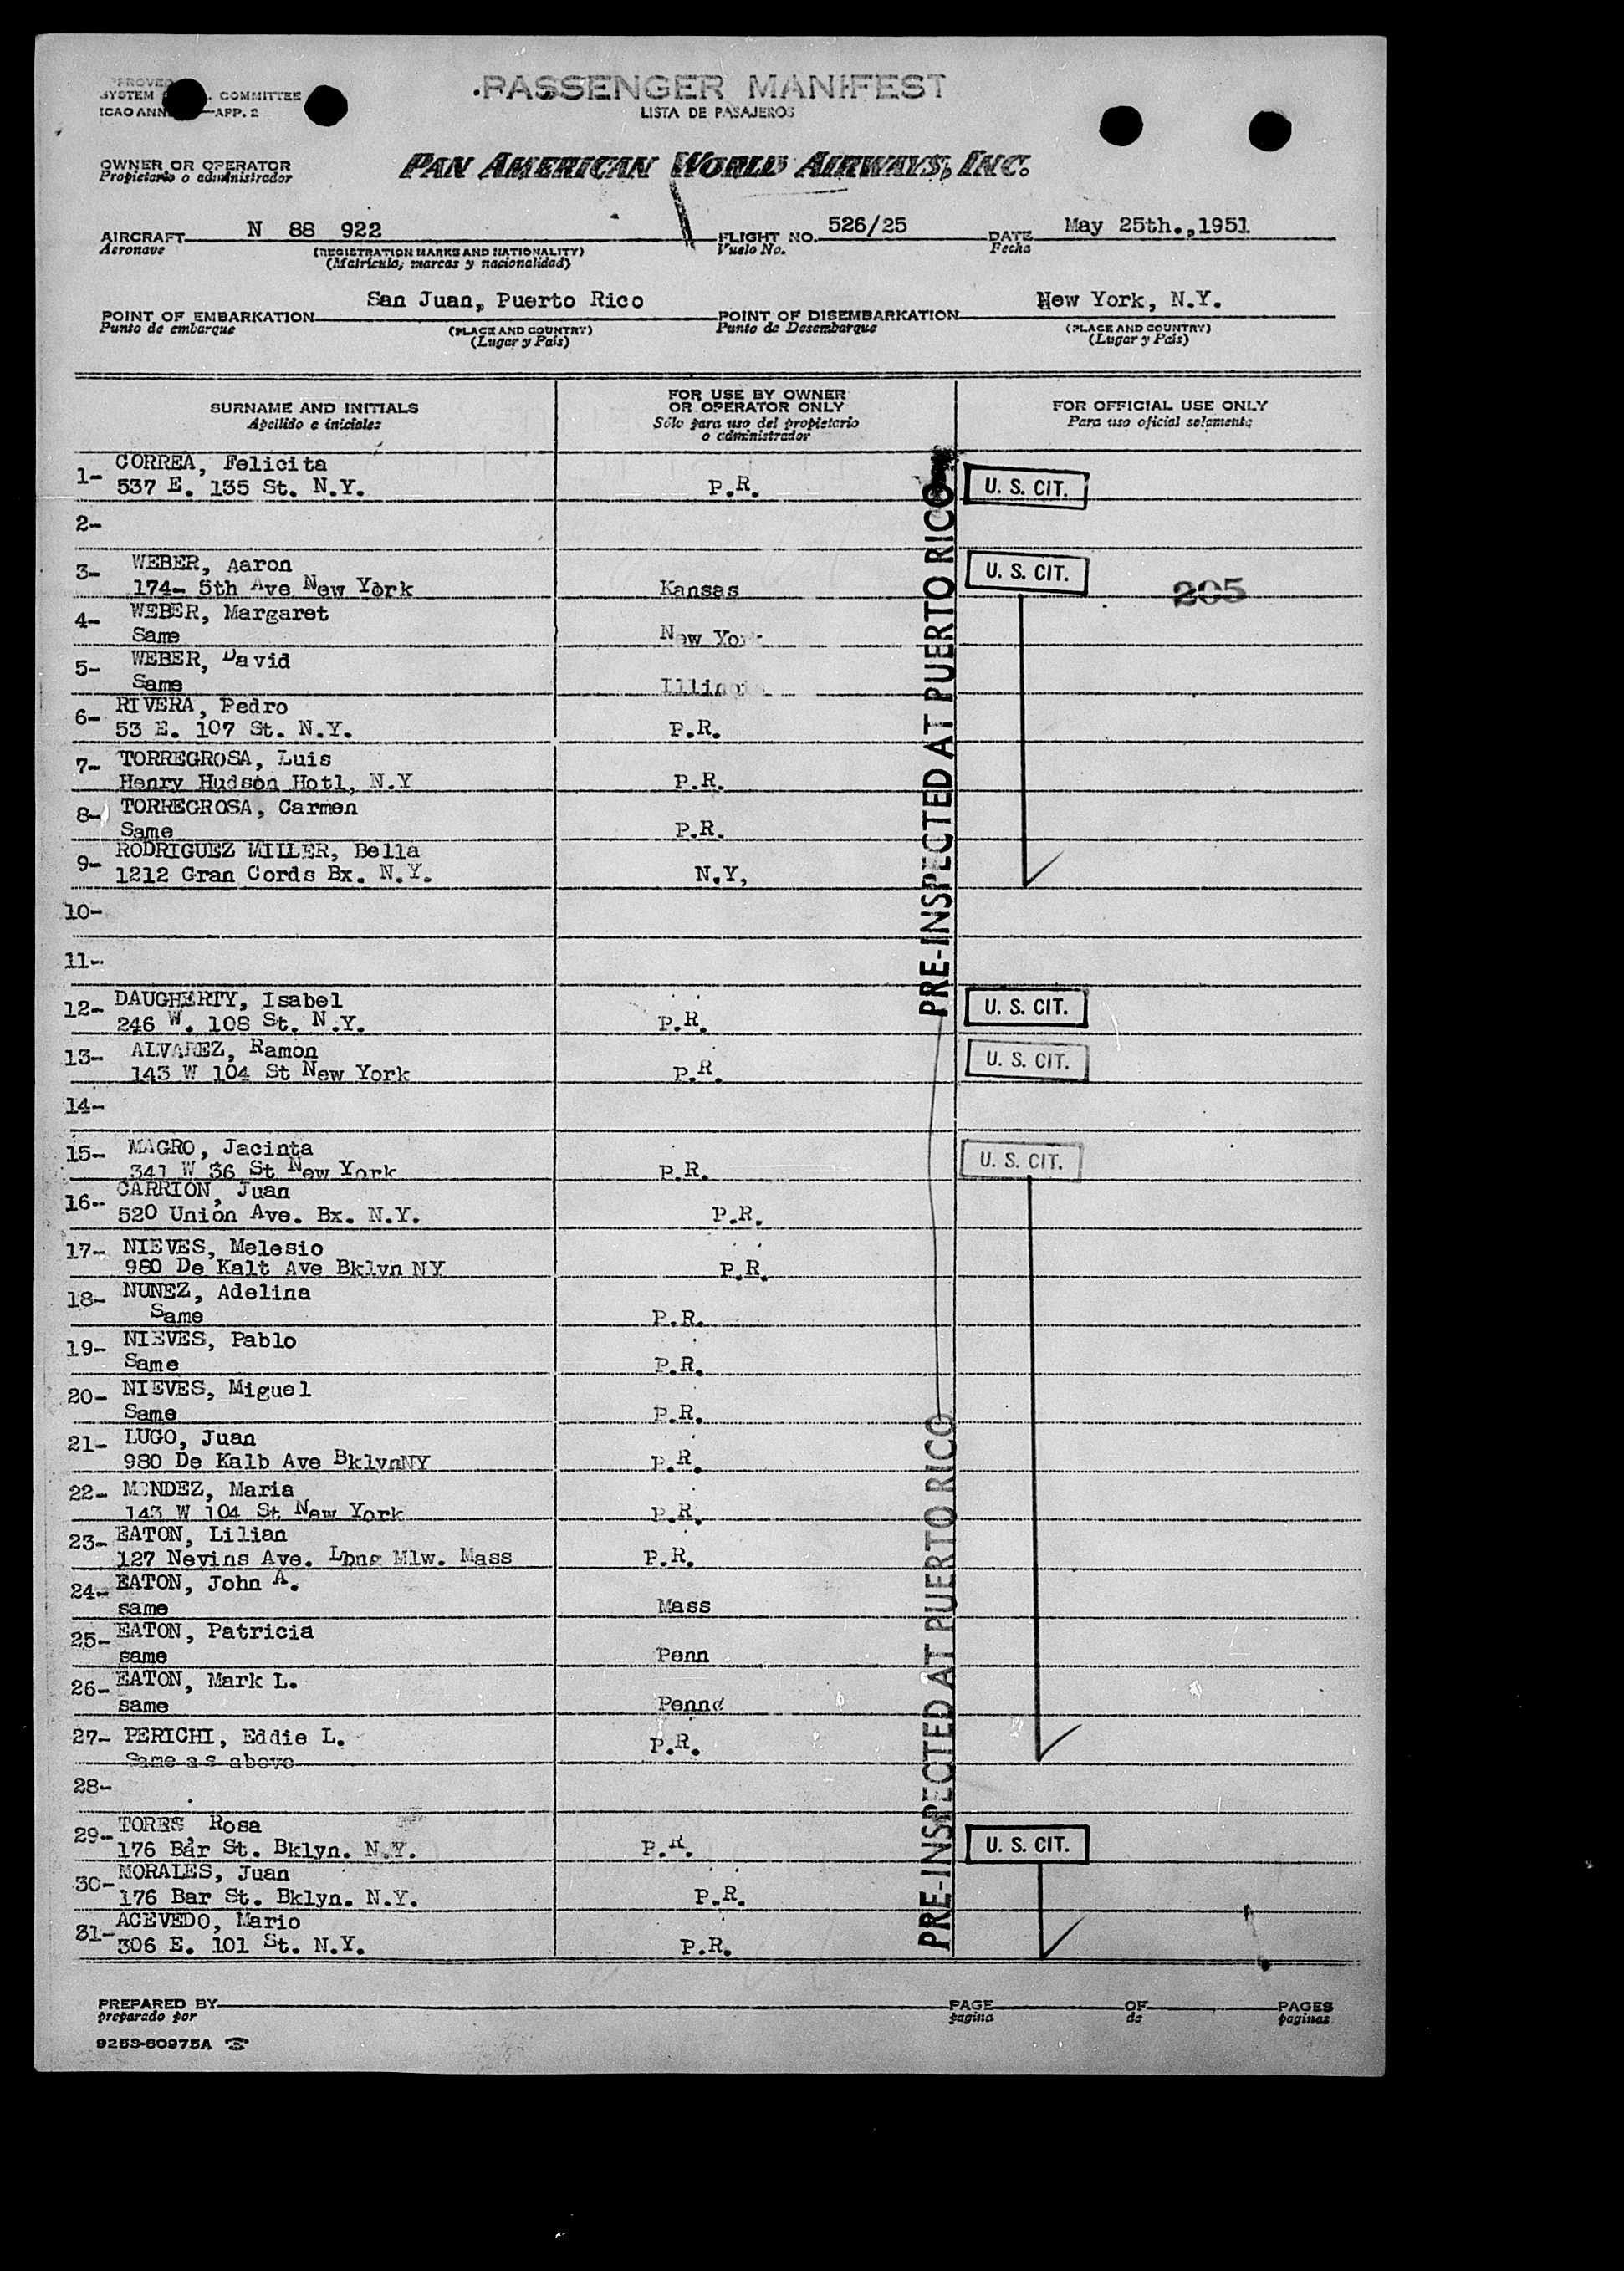 SYSTEM COMMITTEE
ICAO APP. 2
PASSENGER MANIFEST
LISTA DE PASAJEROS
OWNER OR OPERATOR
Propietario o administrador
PAN AMERICAN WORLD AIRWAYS, INC.
AIRCRAFT N 88 922 FLIGHT NO. 526/25 DATE May 25th.,1951
Aeronave (REGISTRATION MARKS AND NATIONALITY) Vuelo No. Fecha
(Matrícula, marcas y nacionalidad)
POINT OF EMBARKATION San Juan, Puerto Rico POINT OF DISEMBARKATION New York, N.Y.
Punto de embarque (PLACE AND COUNTRY) Punto de Desembarque (PLACE AND COUNTRY)
(Lugar y País) (Lugar y País)
SURNAME AND INITIALS FOR USE BY OWNER OR OPERATOR ONLY FOR OFFICIAL USE ONLY
Apellido e iniciales Sólo para uso del propietario o administrador Para uso oficial solamente
1- CORREA, Felicita
537 E. 135 St. N.Y. P.R. U. S. CIT.
2-
3- WEBER, Aaron U. S. CIT.
174- 5th Ave New York Kansas 205
4- WEBER, Margaret
Same New York
5- WEBER, David
Same Illinois
6- RIVERA, Pedro
53 E. 107 St. N.Y. P.R.
7- TORREGROSA, Luis
Henry Hudson Hotl, N.Y P.R.
8- TORREGROSA, Carmen
Same P.R.
9- RODRIGUEZ MILLER, Bella
1212 Gran Cords Bx. N.Y. N.Y,
10-
11-
PRE-INSPECTED AT PUERTO RICO
12- DAUGHERTY, Isabel U. S. CIT.
246 W. 108 St. N.Y. P.R.
13- ALVAREZ, Ramon U. S. CIT.
143 W 104 St New York P.R.
14-
15- MAGRO, Jacinta U. S. CIT.
341 W 36 St New York P.R.
16- CARRION, Juan
520 Union Ave. Bx. N.Y. P.R.
17- NIEVES, Melesio
980 De Kalt Ave Bklyn NY P.R.
18- NUNEZ, Adelina
Same P.R.
19- NIEVES, Pablo
Same P.R.
20- NIEVES, Miguel
Same P.R.
21- LUGO, Juan
980 De Kalb Ave BklynNY P.R.
22- MENDEZ, Maria
143 W 104 St New York P.R.
23- EATON, Lilian
127 Nevins Ave. Long Mlw. Mass P.R.
24- EATON, John A.
same Mass
25- EATON, Patricia
same Penn
26- EATON, Mark L.
same Penn
27- PERICHI, Eddie L.
Same as above P.R.
28-
29- TORES, Rosa U. S. CIT.
176 Bar St. Bklyn. N.Y. P.R.
30- MORALES, Juan
176 Bar St. Bklyn. N.Y. P.R.
31- ACEVEDO, Mario
306 E. 101 St. N.Y. P.R.
PRE-INSPECTED AT PUERTO RICO
PREPARED BY PAGE OF PAGES
preparado por pagina de paginas
9253-60975A